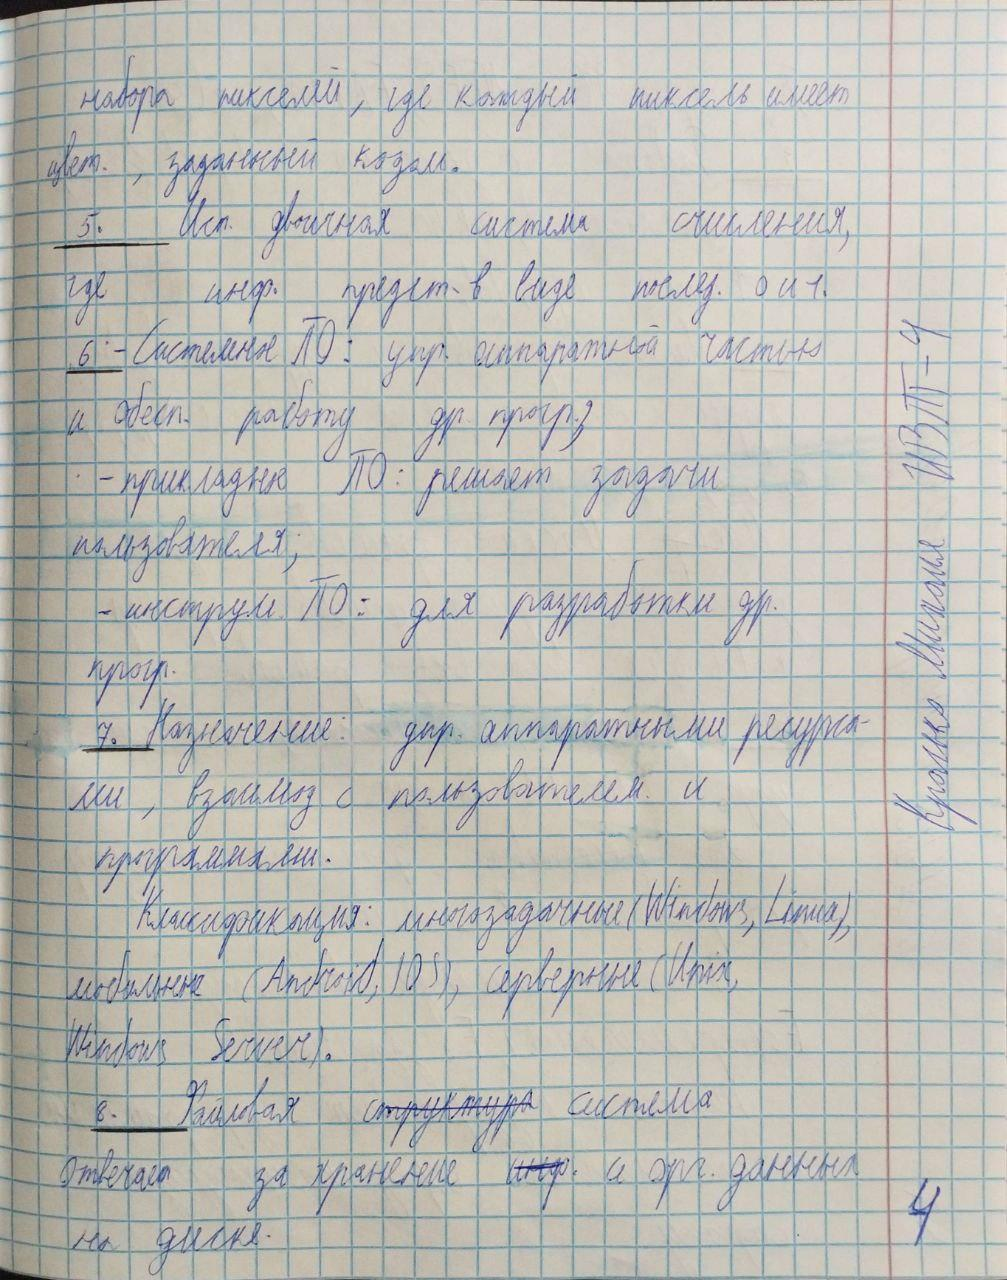 набора пикселей, где каждый пиксель имеет
цвет., заданный кодом.
5. Исп. двоичная система счисления,
где инф. предст. в виде послед. 0 и 1.
6. - Системное ПО: упр. аппаратной частью
и обесп. работу др. прогр.;
- прикладное ПО: решает задачи
пользователя;
- инструм. ПО: для разработки др.
прогр.
7. Назначение: упр. аппаратными ресурса-
ми, взаимод с пользователем. и
программами.
Классификация: многозадачные (Windows, Linux),
мобильные (Android, IOS), серверные (Unix,
Windows Server).
8. Файловая структура система
отвечает за хранение инф. и орг. данных
на диске.
ИВТ-4
4